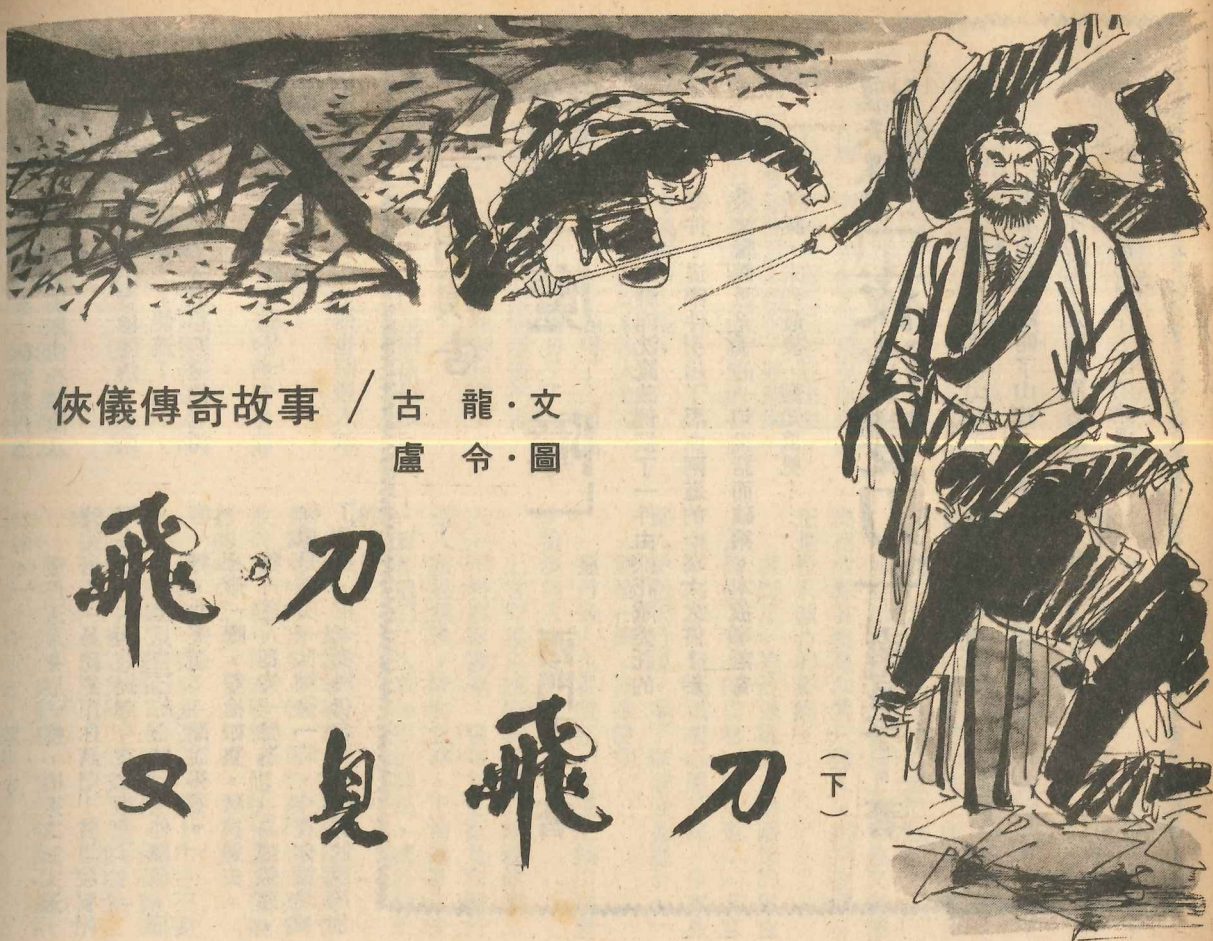 俠儀傳奇故事／古　龍·文
盧　令·圖
飛刀
又見飛刀（下）